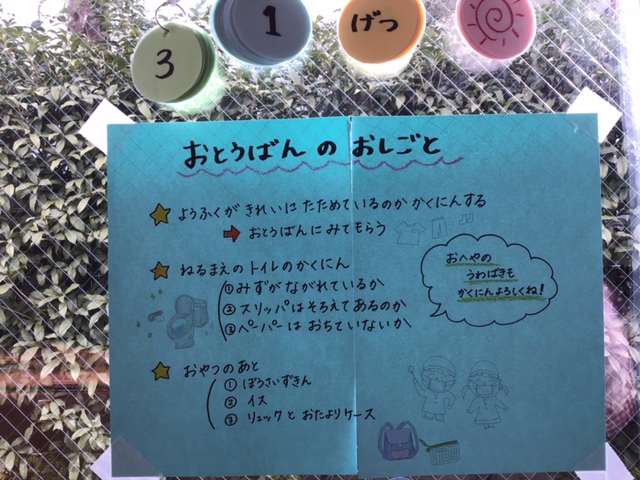 3
1
げつ
おとうばんのおしごと
ようふくがきれいにたためているのかかくにんする
おとうばんにみてもらう
ねるまえのトイレのかくにん
①みずがながれているか
②スリッパはそろえてあるのか
③ペーパーはおちていないか
おへやの
うわばきも
かくにんよろしくね!
おやつのあと
①ぼうさいずきん
②イス
③リュックとおたよりケース